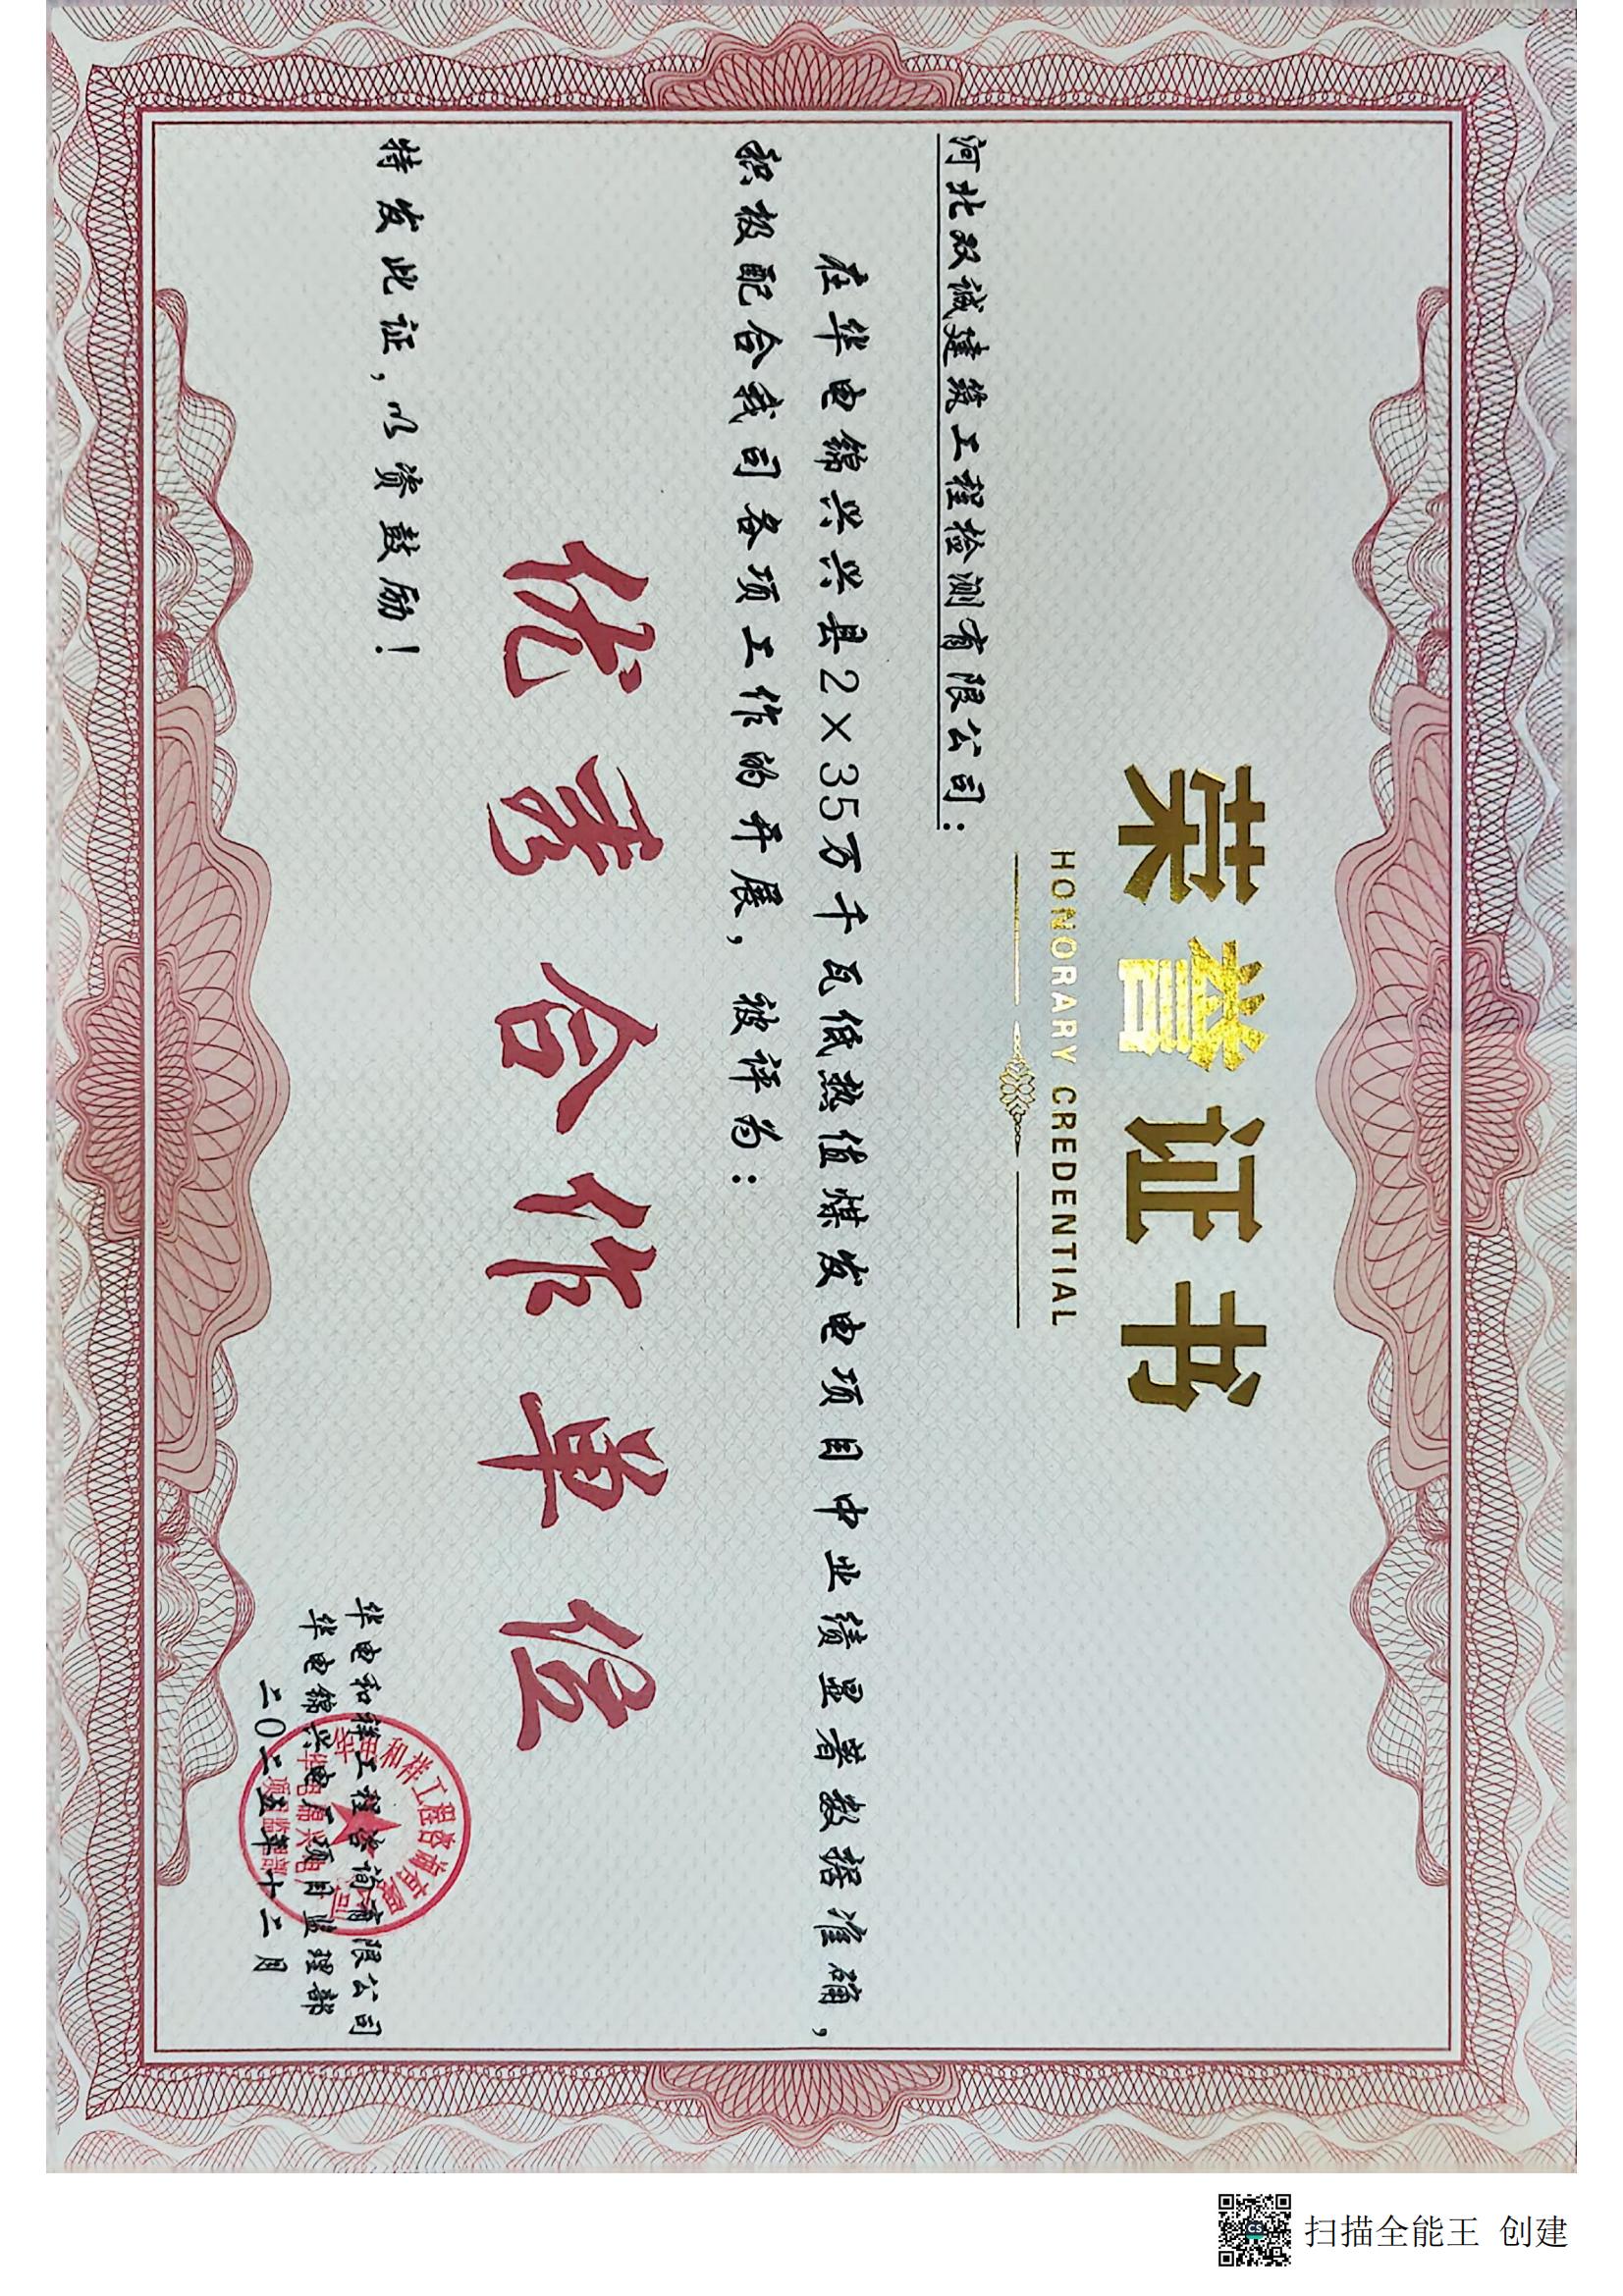 荣誉证书
HONORARY CREDENTIAL
河北双诚建筑工程检测有限公司：
在华电锦兴兴县2×35万千瓦低热值煤发电项目中业绩显著数据准确，
积极配合我司各项工作的开展，被评为：
优秀合作单位
特发此证，以资鼓励！
华电和祥工程咨询有限公司
华电锦兴电厂项目监理部
二〇二五年十二月
华电和祥工程咨询有限公司
华电锦兴电厂
项目监理部
CS
扫描全能王 创建